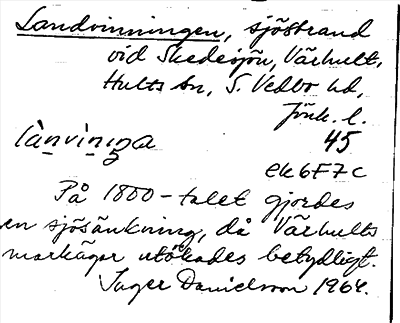 Landvinningen, sjöstrand
vid Skedesjön, Värhult,
Hults sn, S. Vedbo hd,
Jönk. l.
lànvìninga 45
ek6F7c
På 1800-talet gjordes
en sjösänkning, då Värhults
markägor utökades betydligt.
Inger Danielsson 1964.